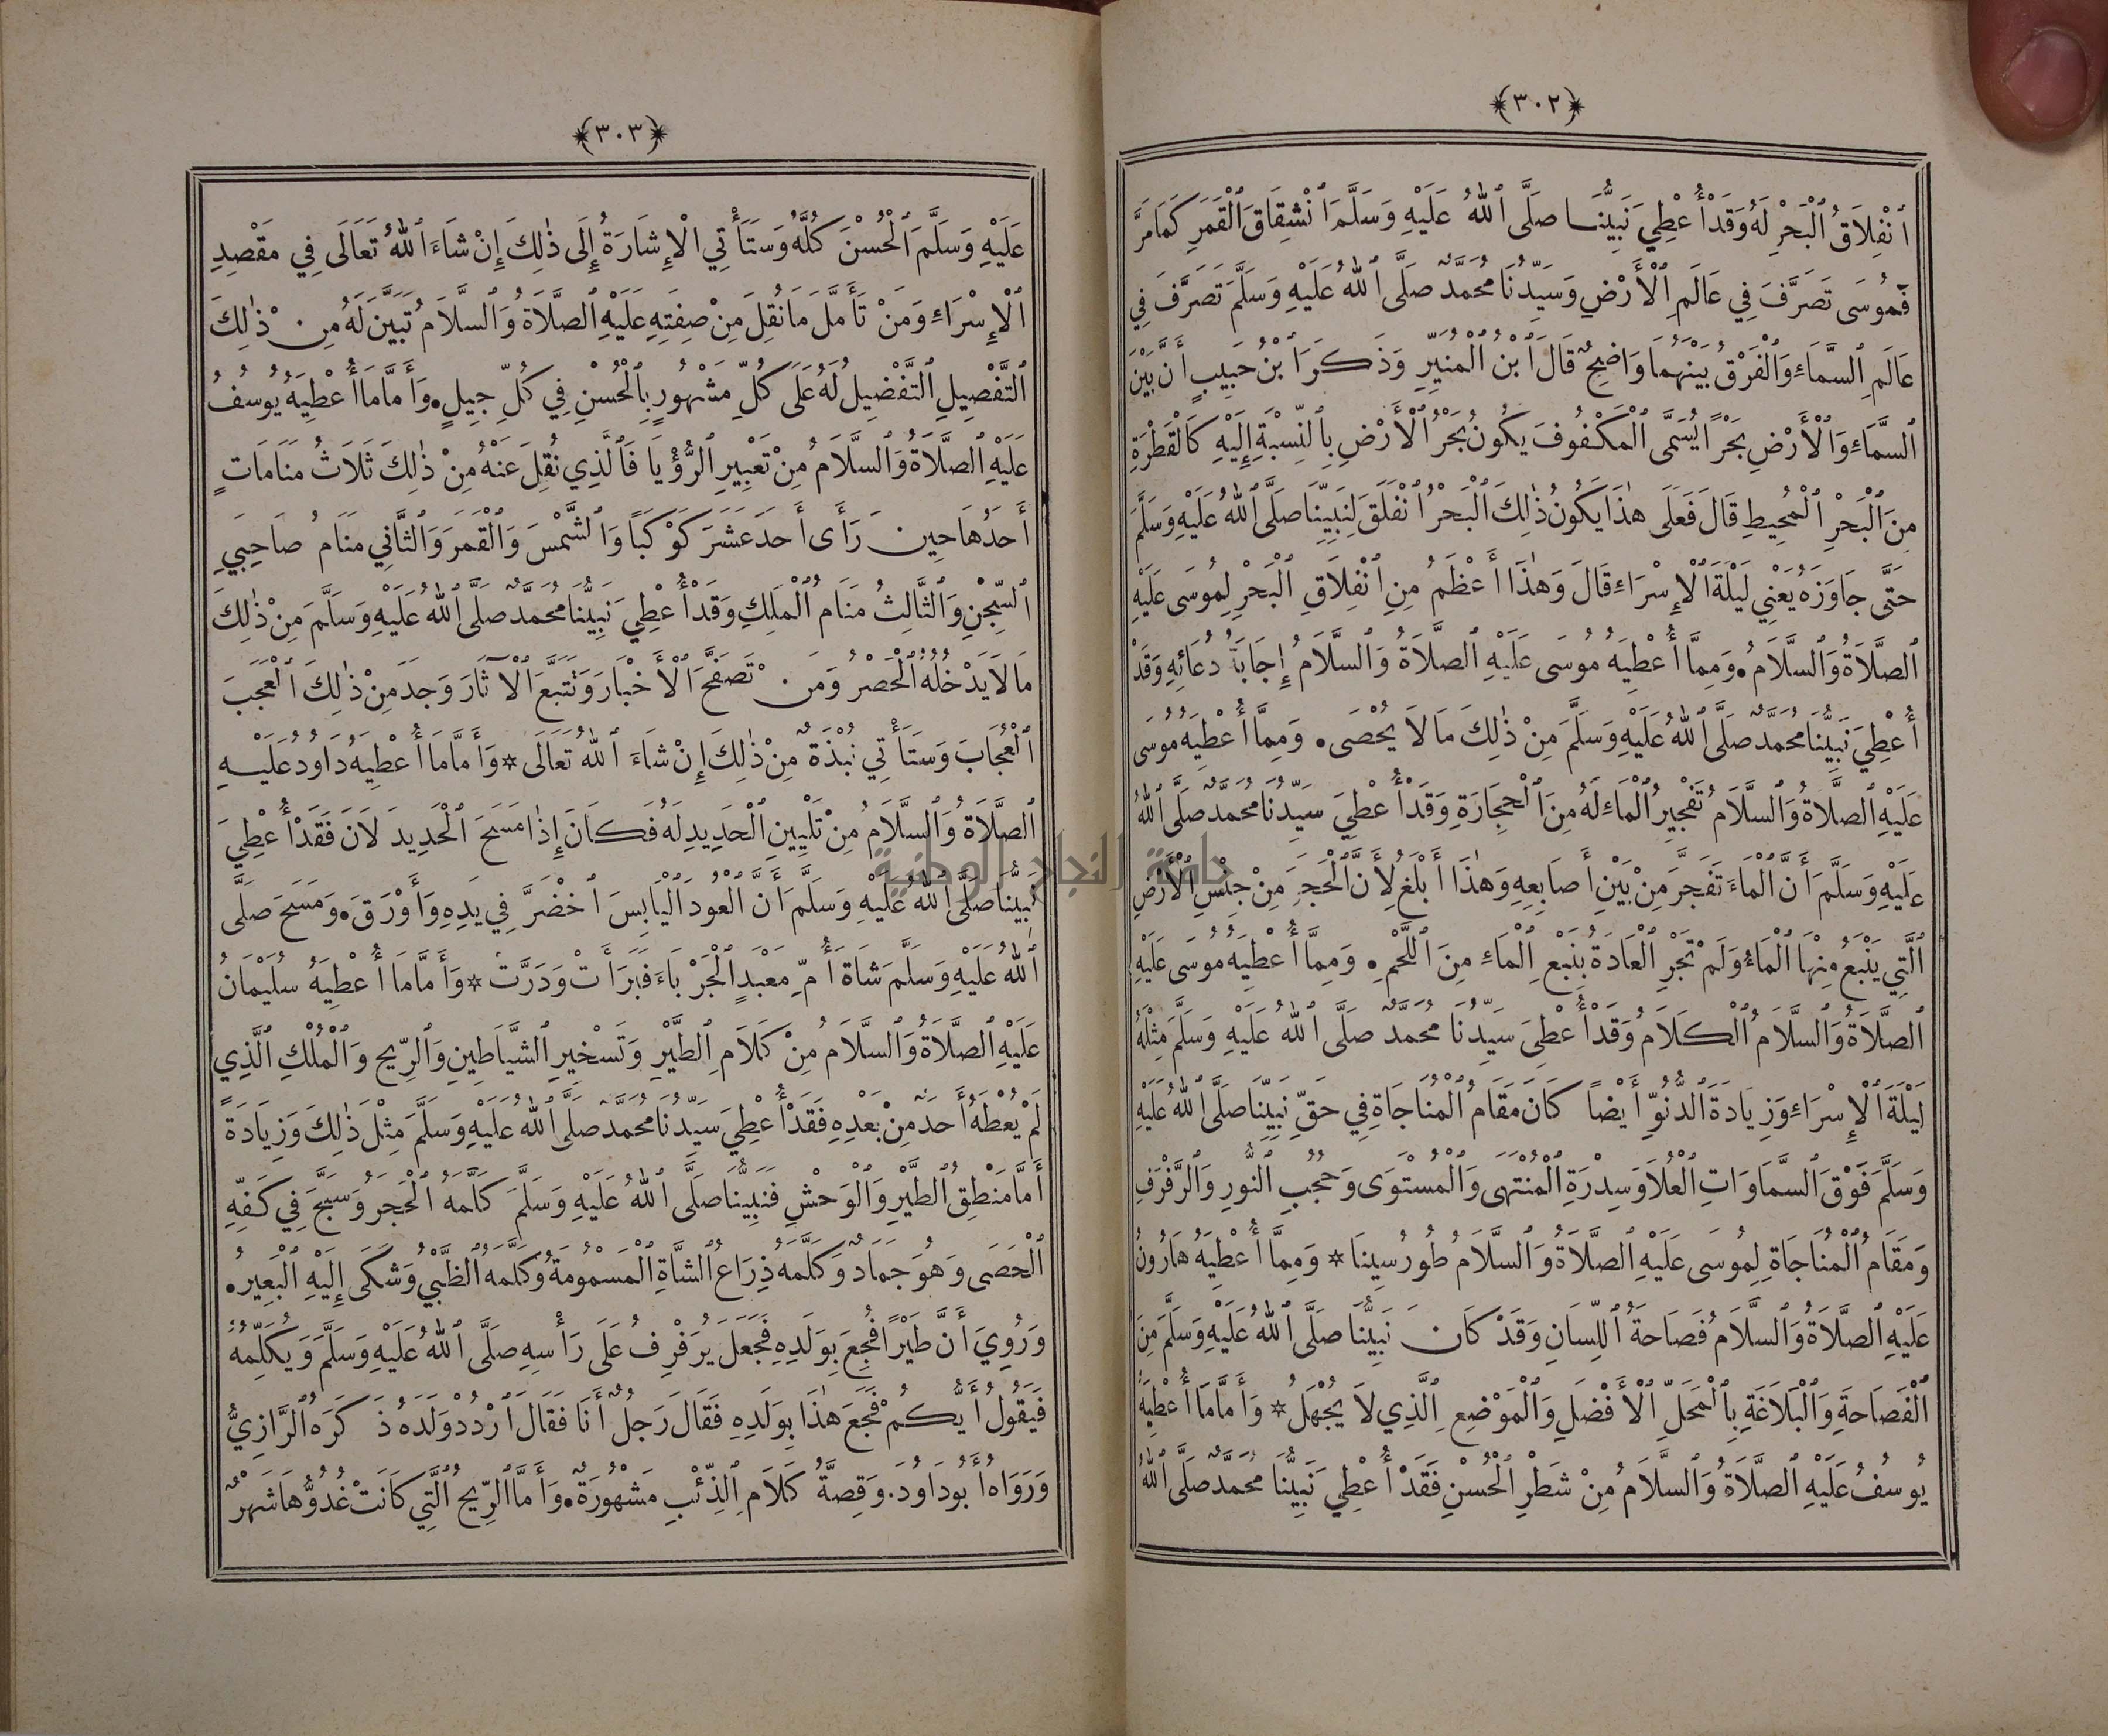 ﴿٣٠٢﴾
ٱنْفِلَاقُ ٱلْبَحْرِ لَهُ وَقَدْ أُعْطِيَ نَبِيُّنَا صَلَّى ٱللهُ عَلَيْهِ وَسَلَّمَ ٱنْشِقَاقَ ٱلْقَمَرِ كَمَا مَرَّ
فَمُوسَى تَصَرَّفَ فِي عَالَمِ ٱلْأَرْضِ وَسَيِّدُنَا مُحَمَّدٌ صَلَّى ٱللهُ عَلَيْهِ وَسَلَّمَ تَصَرَّفَ فِي
عَالَمِ ٱلسَّمَاءِ وَٱلْفَرْقُ بَيْنَهُمَا وَاضِحٌ قَالَ ٱبْنُ ٱلْمُنَيِّرِ وَذَكَرَ ٱبْنُ حَبِيبٍ أَنَّ بَيْنَ
ٱلسَّمَاءِ وَٱلْأَرْضِ بَحْرًا يُسَمَّى ٱلْمَكْفُوفَ يَكُونُ بَحْرُ ٱلْأَرْضِ بِٱلنِّسْبَةِ إِلَيْهِ كَٱلْقَطْرَةِ
مِنَ ٱلْبَحْرِ ٱلْمُحِيطِ قَالَ فَعَلَى هٰذَا يَكُونُ ذٰلِكَ ٱلْبَحْرُ ٱنْفَلَقَ لِنَبِيِّنَا صَلَّى ٱللهُ عَلَيْهِ وَسَلَّمَ
حَتَّى جَاوَزَهُ يَعْنِي لَيْلَةَ ٱلْإِسْرَاءِ قَالَ وَهٰذَا أَعْظَمُ مِنِ ٱنْفِلَاقِ ٱلْبَحْرِ لِمُوسَى عَلَيْهِ
ٱلصَّلَاةُ وَٱلسَّلَامُ ۰ وَمِمَّا أُعْطِيَهُ مُوسَى عَلَيْهِ ٱلصَّلَاةُ وَٱلسَّلَامُ إِجَابَةُ دُعَائِهِ وَقَدْ
أُعْطِيَ نَبِيُّنَا مُحَمَّدٌ صَلَّى ٱللهُ عَلَيْهِ وَسَلَّمَ مِنْ ذٰلِكَ مَا لَا يُحْصَى ۰ وَمِمَّا أُعْطِيَهُ مُوسَى
عَلَيْهِ ٱلصَّلَاةُ وَٱلسَّلَامُ تَفْجِيرُ ٱلْمَاءِ لَهُ مِنَ ٱلْحِجَارَةِ وَقَدْ أُعْطِيَ سَيِّدُنَا مُحَمَّدٌ صَلَّى ٱللهُ
عَلَيْهِ وَسَلَّمَ أَنَّ ٱلْمَاءَ تَفَجَّرَ مِنْ بَيْنِ أَصَابِعِهِ وَهٰذَا أَبْلَغُ لِأَنَّ ٱلْحَجَرَ مِنْ جِنْسِ ٱلْأَرْضِ
ٱلَّتِي يَنْبَعُ مِنْهَا ٱلْمَاءُ وَلَمْ تَجْرِ ٱلْعَادَةُ بِنَبْعِ ٱلْمَاءِ مِنَ ٱللَّحْمِ ۰ وَمِمَّا أُعْطِيَهُ مُوسَى عَلَيْهِ
ٱلصَّلَاةُ وَٱلسَّلَامُ ٱلْكَلَامُ وَقَدْ أُعْطِيَ سَيِّدُنَا مُحَمَّدٌ صَلَّى ٱللهُ عَلَيْهِ وَسَلَّمَ مِثْلَهُ
لَيْلَةَ ٱلْإِسْرَاءِ وَزِيَادَةَ ٱلدُّنُوِّ أَيْضًا كَانَ مَقَامُ ٱلْمُنَاجَاةِ فِي حَقِّ نَبِيِّنَا صَلَّى ٱللهُ عَلَيْهِ
وَسَلَّمَ فَوْقَ ٱلسَّمَاوَاتِ ٱلْعُلَا وَسِدْرَةِ ٱلْمُنْتَهَى وَٱلْمُسْتَوَى وَحُجُبِ ٱلنُّورِ وَٱلرَّفْرَفِ
وَمَقَامُ ٱلْمُنَاجَاةِ لِمُوسَى عَلَيْهِ ٱلصَّلَاةُ وَٱلسَّلَامُ طُورُ سِينَا * وَمِمَّا أُعْطِيَهُ هَارُونُ
عَلَيْهِ ٱلصَّلَاةُ وَٱلسَّلَامُ فَصَاحَةُ ٱللِّسَانِ وَقَدْ كَانَ نَبِيُّنَا صَلَّى ٱللهُ عَلَيْهِ وَسَلَّمَ مِنَ
ٱلْفَصَاحَةِ وَٱلْبَلَاغَةِ بِٱلْمَحَلِّ ٱلْأَفْضَلِ وَٱلْمَوْضِعِ ٱلَّذِي لَا يُجْهَلُ * وَأَمَّا مَا أُعْطِيَهُ
يُوسُفُ عَلَيْهِ ٱلصَّلَاةُ وَٱلسَّلَامُ مِنْ شَطْرِ ٱلْحُسْنِ فَقَدْ أُعْطِيَ نَبِيُّنَا مُحَمَّدٌ صَلَّى ٱللهُ
﴿٣٠٣﴾
عَلَيْهِ وَسَلَّمَ ٱلْحُسْنَ كُلَّهُ وَسَتَأْتِي ٱلْإِشَارَةُ إِلَى ذٰلِكَ إِنْ شَاءَ ٱللهُ تَعَالَى فِي مَقْصِدِ
ٱلْإِسْرَاءِ وَمَنْ تَأَمَّلَ مَا نُقِلَ مِنْ صِفَتِهِ عَلَيْهِ ٱلصَّلَاةُ وَٱلسَّلَامُ تَبَيَّنَ لَهُ مِنْ ذٰلِكَ
ٱلتَّفْصِيلِ ٱلتَّفْضِيلُ لَهُ عَلَى كُلِّ مَشْهُورٍ بِٱلْحُسْنِ فِي كُلِّ جِيلٍ ۰ وَأَمَّا مَا أُعْطِيَهُ يُوسُفُ
عَلَيْهِ ٱلصَّلَاةُ وَٱلسَّلَامُ مِنْ تَعْبِيرِ ٱلرُّؤْيَا فَٱلَّذِي نُقِلَ عَنْهُ مِنْ ذٰلِكَ ثَلَاثُ مَنَامَاتٍ
أَحَدُهَا حِينَ رَأَى أَحَدَ عَشَرَ كَوْكَبًا وَٱلشَّمْسَ وَٱلْقَمَرَ وَٱلثَّانِي مَنَامُ صَاحِبَيِ
ٱلسِّجْنِ وَٱلثَّالِثُ مَنَامُ ٱلْمَلِكِ وَقَدْ أُعْطِيَ نَبِيُّنَا مُحَمَّدٌ صَلَّى ٱللهُ عَلَيْهِ وَسَلَّمَ مِنْ ذٰلِكَ
مَا لَا يَدْخُلُهُ ٱلْحَصْرُ وَمَنْ تَصَفَّحَ ٱلْأَخْبَارَ وَتَتَبَّعَ ٱلْآثَارَ وَجَدَ مِنْ ذٰلِكَ ٱلْعَجَبَ
ٱلْعُجَابَ وَسَتَأْتِي نُبْذَةٌ مِنْ ذٰلِكَ إِنْ شَاءَ ٱللهُ تَعَالَى * وَأَمَّا مَا أُعْطِيَهُ دَاوُدُ عَلَيْهِ
ٱلصَّلَاةُ وَٱلسَّلَامُ مِنْ تَلْيِينِ ٱلْحَدِيدِ لَهُ فَكَانَ إِذَا مَسَحَ ٱلْحَدِيدَ لَانَ فَقَدْ أُعْطِيَ
نَبِيُّنَا صَلَّى ٱللهُ عَلَيْهِ وَسَلَّمَ أَنَّ ٱلْعُودَ ٱلْيَابِسَ ٱخْضَرَّ فِي يَدِهِ وَأَوْرَقَ ۰ وَمَسَحَ صَلَّى
ٱللهُ عَلَيْهِ وَسَلَّمَ شَاةَ أُمِّ مَعْبَدٍ ٱلْجَرْبَاءَ فَبَرَأَتْ وَدَرَّتْ * وَأَمَّا مَا أُعْطِيَهُ سُلَيْمَانُ
عَلَيْهِ ٱلصَّلَاةُ وَٱلسَّلَامُ مِنْ كَلَامِ ٱلطَّيْرِ وَتَسْخِيرِ ٱلشَّيَاطِينِ وَٱلرِّيحِ وَٱلْمُلْكِ ٱلَّذِي
لَمْ يُعْطَهُ أَحَدٌ مِنْ بَعْدِهِ فَقَدْ أُعْطِيَ سَيِّدُنَا مُحَمَّدٌ صَلَّى ٱللهُ عَلَيْهِ وَسَلَّمَ مِثْلَ ذٰلِكَ وَزِيَادَةً
أَمَّا مَنْطِقُ ٱلطَّيْرِ وَٱلْوَحْشِ فَنَبِيُّنَا صَلَّى ٱللهُ عَلَيْهِ وَسَلَّمَ كَلَّمَهُ ٱلْحَجَرُ وَسَبَّحَ فِي كَفِّهِ
ٱلْحَصَى وَهُوَ جَمَادٌ وَكَلَّمَهُ ذِرَاعُ ٱلشَّاةِ ٱلْمَسْمُومَةُ وَكَلَّمَهُ ٱلظَّبْيُ وَشَكَى إِلَيْهِ ٱلْبَعِيرُ ۰
وَرُوِيَ أَنَّ طَيْرًا فُجِعَ بِوَلَدِهِ فَجَعَلَ يُرَفْرِفُ عَلَى رَأْسِهِ صَلَّى ٱللهُ عَلَيْهِ وَسَلَّمَ وَيُكَلِّمُهُ
فَيَقُولُ أَيُّكُمْ فَجَعَ هٰذَا بِوَلَدِهِ فَقَالَ رَجُلٌ أَنَا فَقَالَ ٱرْدُدْ وَلَدَهُ ذَكَرَهُ ٱلرَّازِيُّ
وَرَوَاهُ أَبُو دَاوُدَ ۰ وَقِصَّةُ كَلَامِ ٱلذِّئْبِ مَشْهُورَةٌ ۰ وَأَمَّا ٱلرِّيحُ ٱلَّتِي كَانَتْ غُدُوُّهَا شَهْرٌ
جامعة النجاح الوطنية